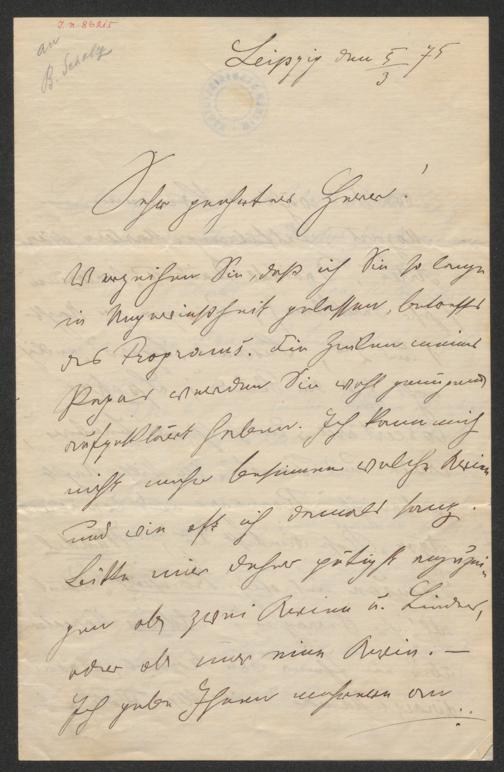 J.N. 86215
an
B. Scholz
Leipzig den 5/3 75
Sehr geehrter Herr!
Verzeihen Sie, daß ich Sie so lange
in Ungewissheit gelassen, betreffs
des Programs. Die Zeilen meines
Papas werden Sie wohl genügend
aufgeklärt haben. Ich kann mich
nicht mehr besinnen welche Arien
und wie oft ich damals sang.
Bitte mir daher gütigst anzuzei-
gen ob zwei Arien u. Lieder,
oder ob nur eine Arie. —
Ich gebe Ihnen mehrere an